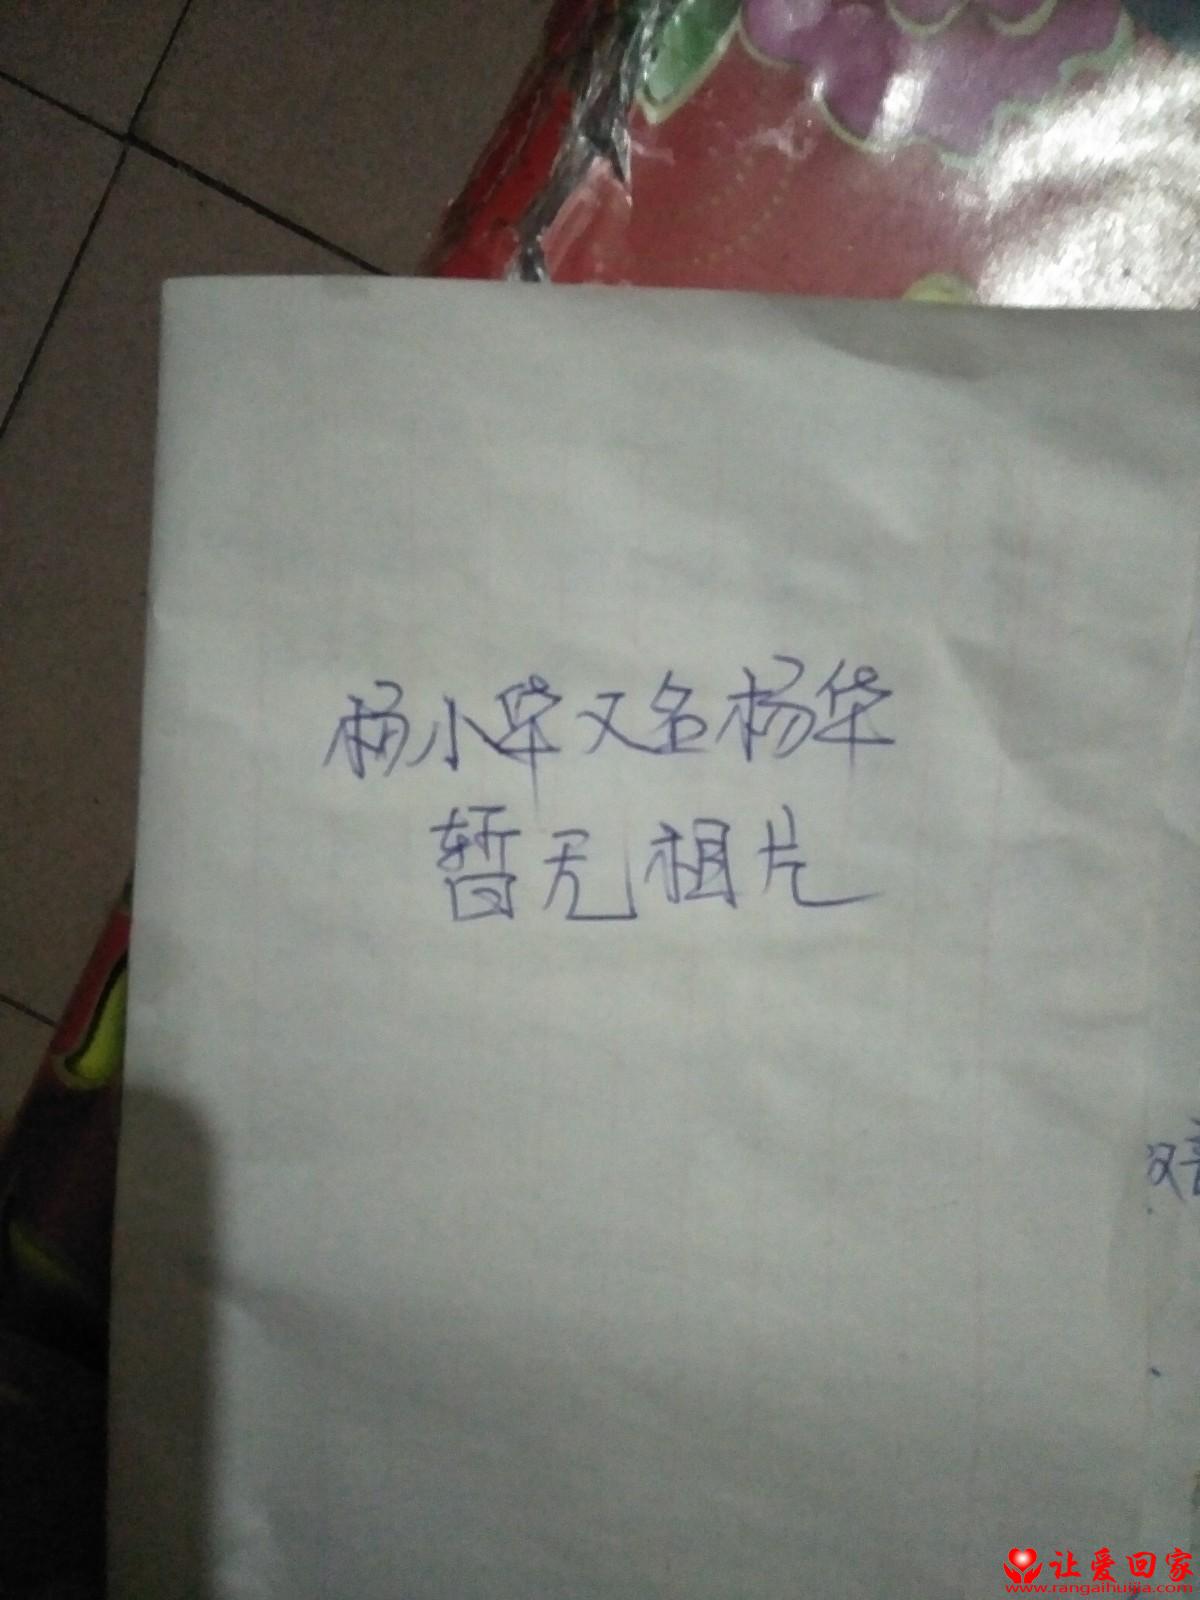 杨小华又名杨华
暂无相片
让爱回家
www.rangaihuijia.com